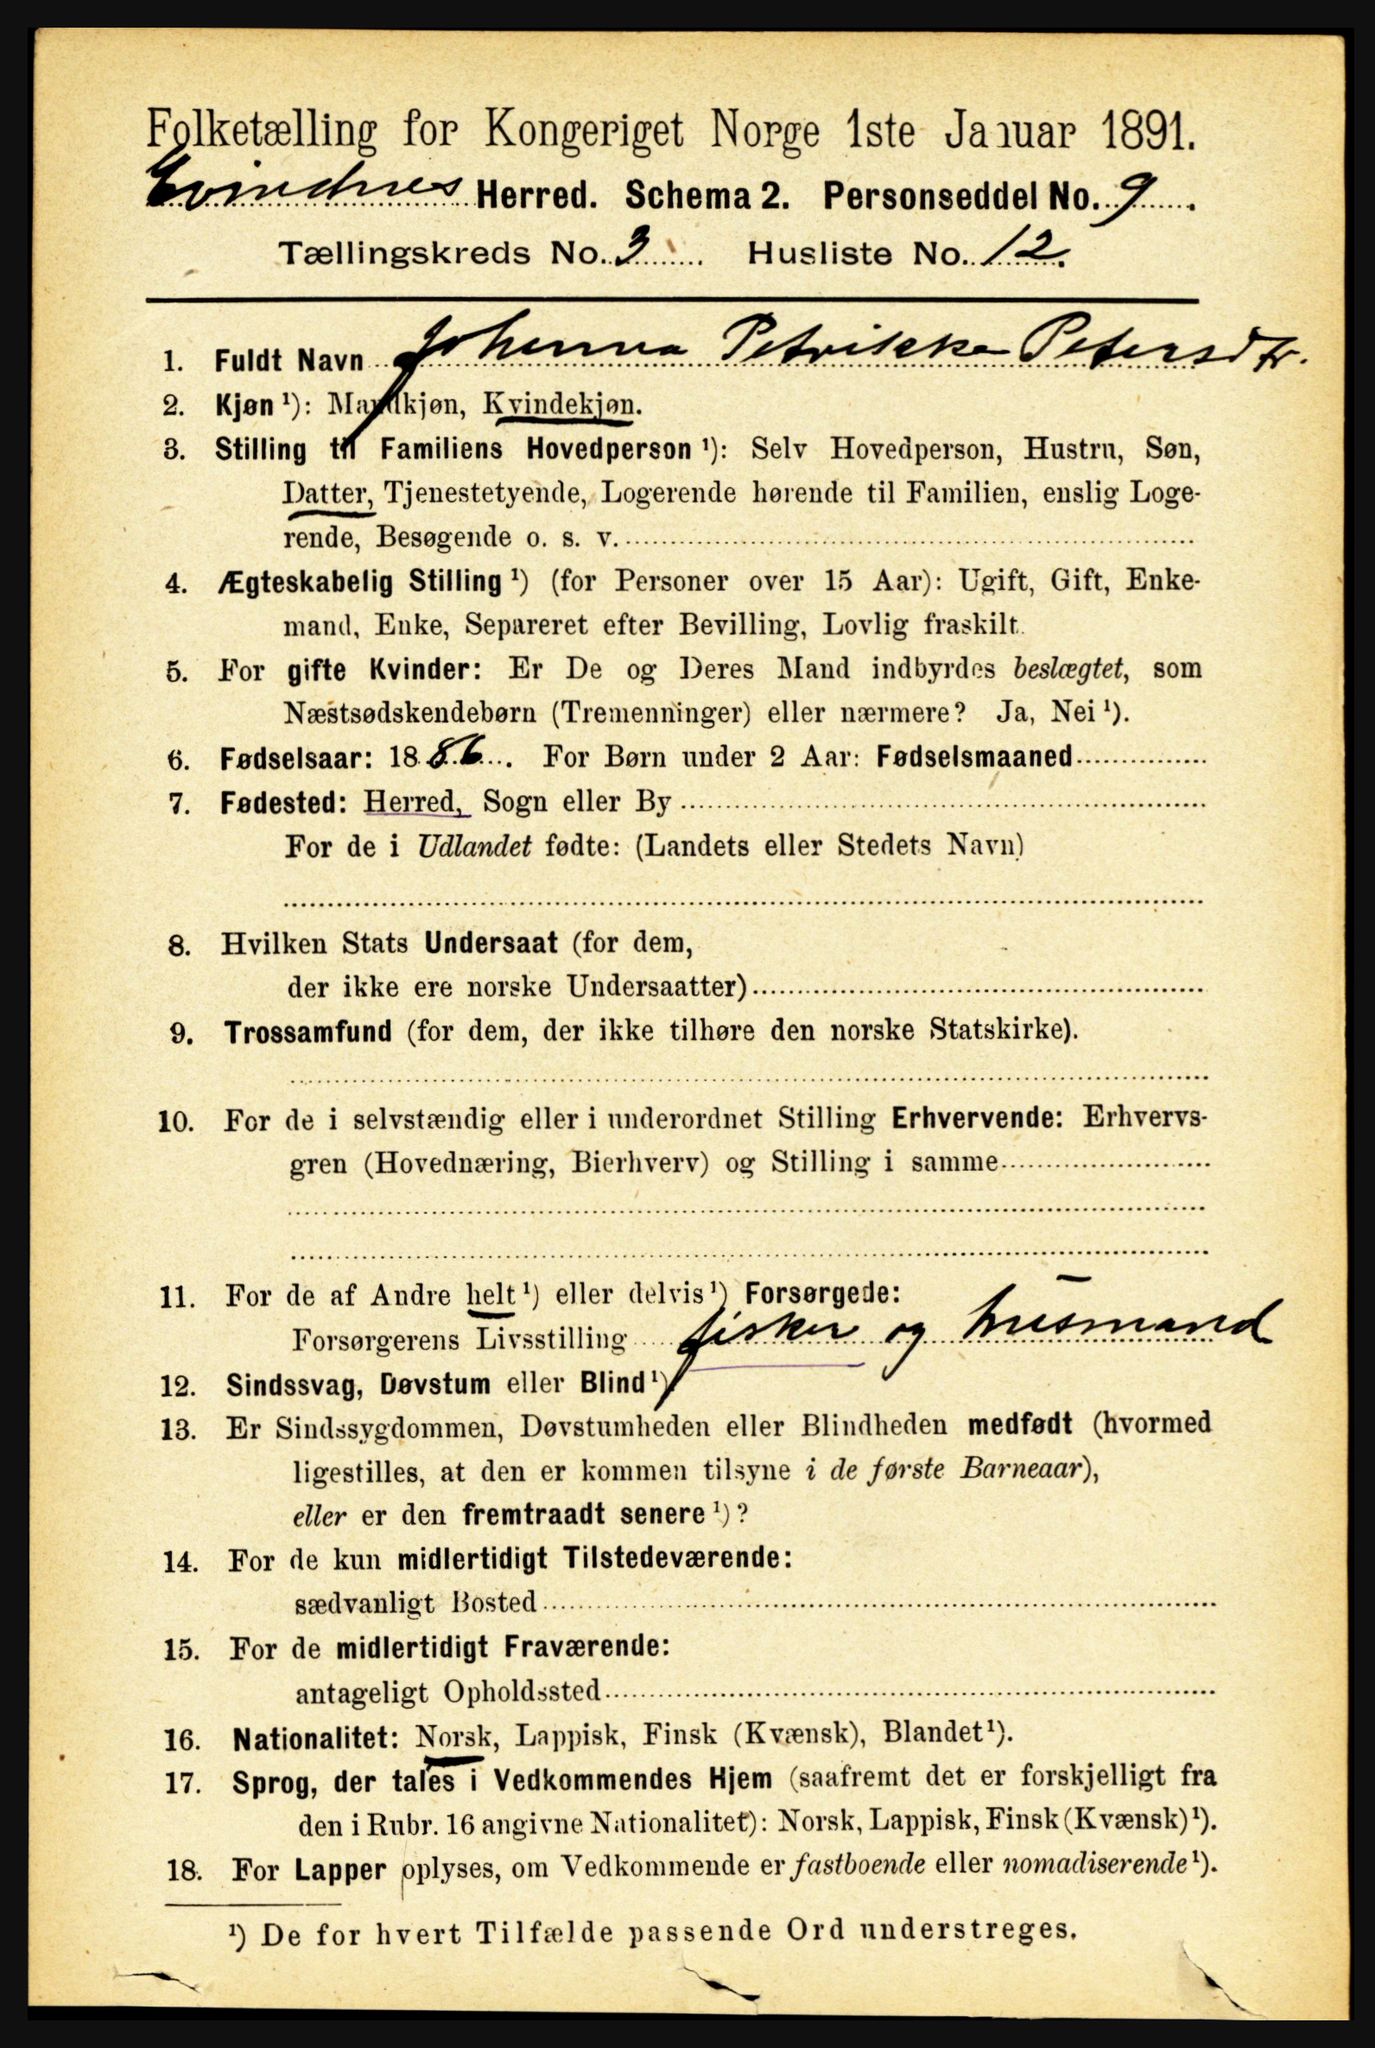 Folketælling for Kongeriget Norge 1ste Januar 1891.
Evindnes Herred. Schema 2. Personseddel No. 9
Tællingskreds No. 3 Husliste No. 12.
1. Fuldt Navn Johanna Petrikke Petersdtr.
2. Kjøn ¹): Mandkjøn, Kvindekjøn.
3. Stilling til Familiens Hovedperson ¹): Selv Hovedperson, Hustru, Søn,
Datter, Tjenestetyende, Logerende hørende til Familien, enslig Loge-
rende, Besøgende o. s. v.
4. Ægteskabelig Stilling ¹) (for Personer over 15 Aar): Ugift, Gift, Enke-
mand, Enke, Separeret efter Bevilling, Lovlig fraskilt.
5. For gifte Kvinder: Er De og Deres Mand indbyrdes beslægtet, som
Næstsødskendebørn (Tremenninger) eller nærmere? Ja, Nei ¹).
6. Fødselsaar: 1886. For Børn under 2 Aar: Fødselsmaaned
7. Fødested: Herred, Sogn eller By
For de i Udlandet fødte: (Landets eller Stedets Navn)
8. Hvilken Stats Undersaat (for dem,
der ikke ere norske Undersaatter)
9. Trossamfund (for dem, der ikke tilhøre den norske Statskirke).
10. For de i selvstændig eller i underordnet Stilling Erhvervende: Erhvervs-
gren (Hovednæring, Bierhverv) og Stilling i samme
11. For de af Andre helt ¹) eller delvis ¹) Forsørgede:
Forsørgerens Livsstilling fisker og husmand
12. Sindssvag, Døvstum eller Blind ¹).
13. Er Sindssygdommen, Døvstumheden eller Blindheden medfødt (hvormed
ligestilles, at den er kommen tilsyne i de første Barneaar),
eller er den fremtraadt senere ¹)?
14. For de kun midlertidigt Tilstedeværende:
sædvanligt Bosted
15. For de midlertidigt Fraværende:
antageligt Opholdssted
16. Nationalitet: Norsk, Lappisk, Finsk (Kvænsk), Blandet ¹).
17. Sprog, der tales i Vedkommendes Hjem (saafremt det er forskjelligt fra
den i Rubr. 16 angivne Nationalitet): Norsk, Lappisk, Finsk (Kvænsk) ¹).
18. For Lapper oplyses, om Vedkommende er fastboende eller nomadiserende ¹).
¹) De for hvert Tilfælde passende Ord understreges.